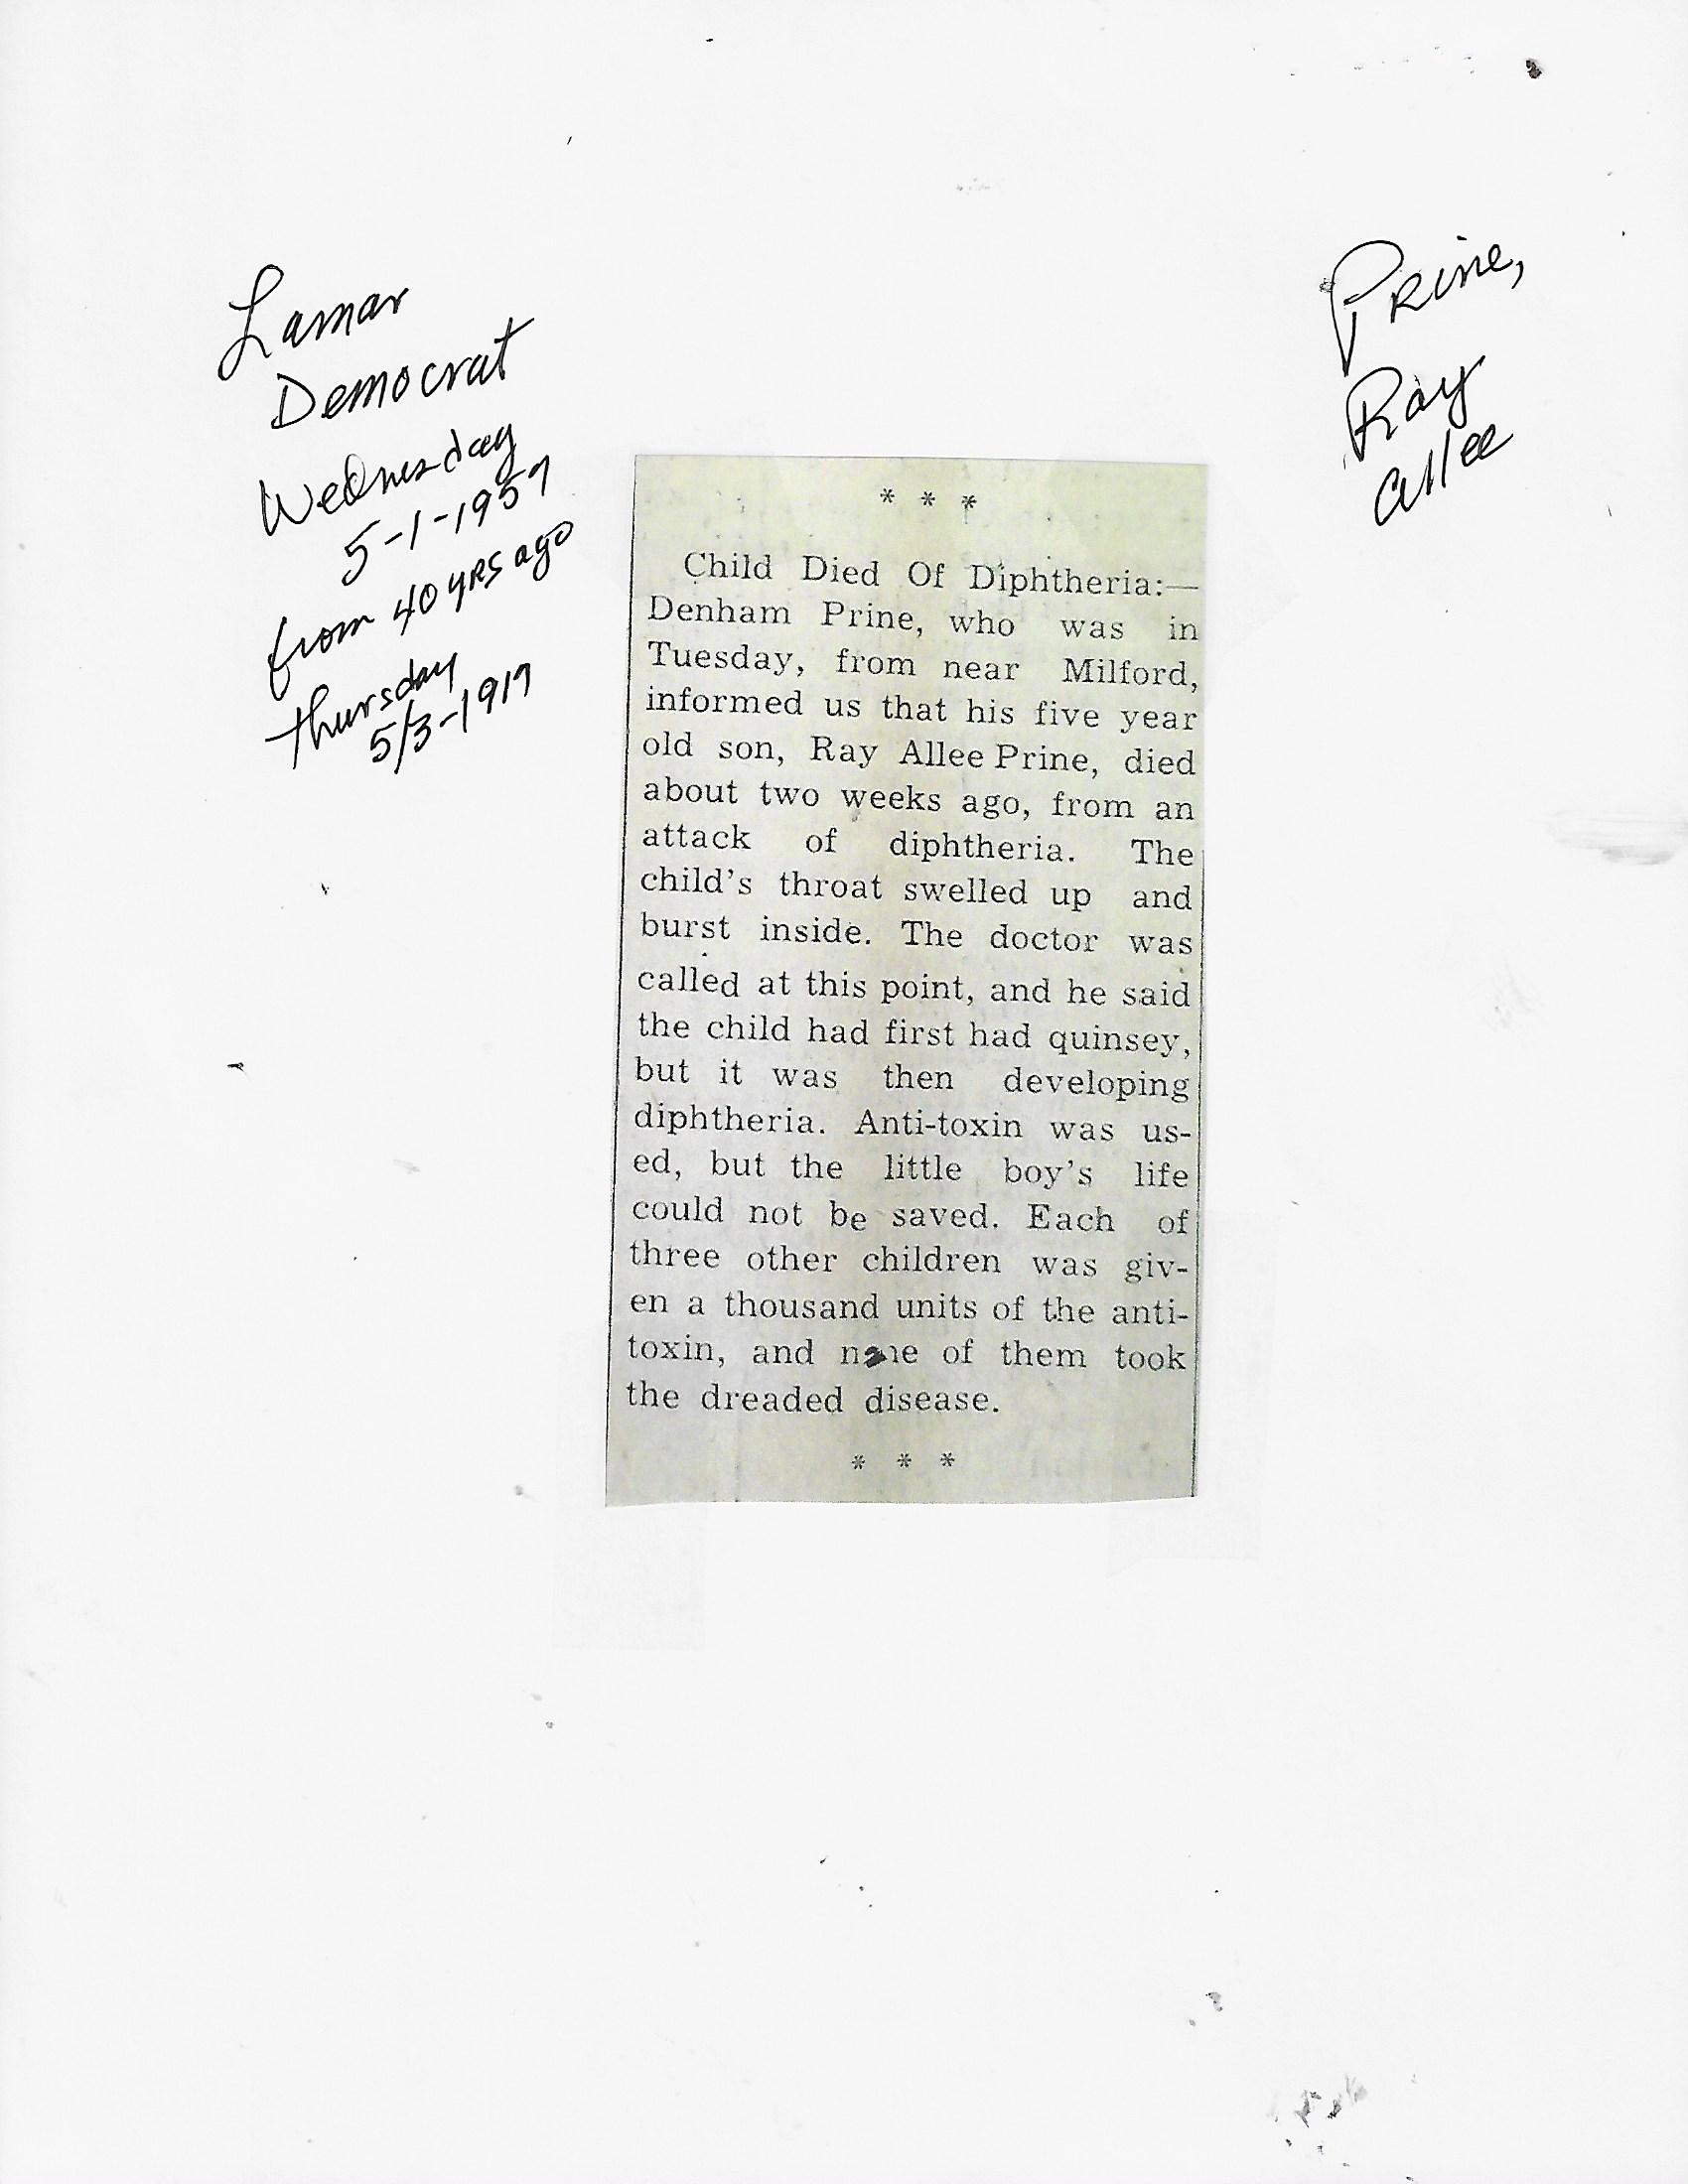 Lamar
Democrat
Wednesday
5-1-1957
from 40 yrs ago
Thursday
5/3-1917
Prine,
Ray
Allee
* * *
Child Died Of Diphtheria:—
Denham Prine, who was in
Tuesday, from near Milford,
informed us that his five year
old son, Ray Allee Prine, died
about two weeks ago, from an
attack of diphtheria. The
child's throat swelled up and
burst inside. The doctor was
called at this point, and he said
the child had first had quinsey,
but it was then developing
diphtheria. Anti-toxin was us-
ed, but the little boy's life
could not be saved. Each of
three other children was giv-
en a thousand units of the anti-
toxin, and none of them took
the dreaded disease.
* * *